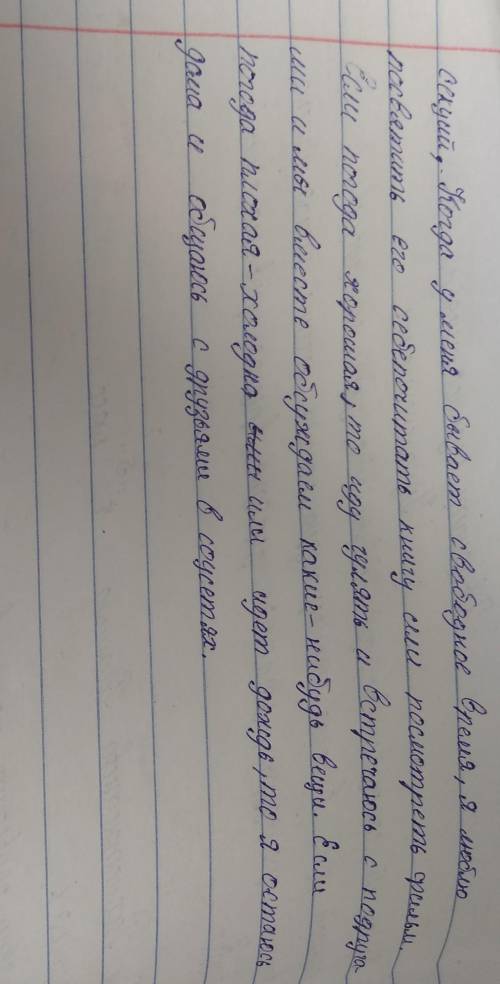 секций,. Когда у меня бывает свободное время, я люблю
посветить его себепочитать книгу или посмотреть фильм.
Если погода хорошая, то иду гулять и встречаюсь с подруга-
ми и мы вместе обсуждаем какие-нибудь вещи. Если
погода плохая - холодно или идет дождь, то я остаюсь
дома и общаюсь с друзьями в соцсетях.